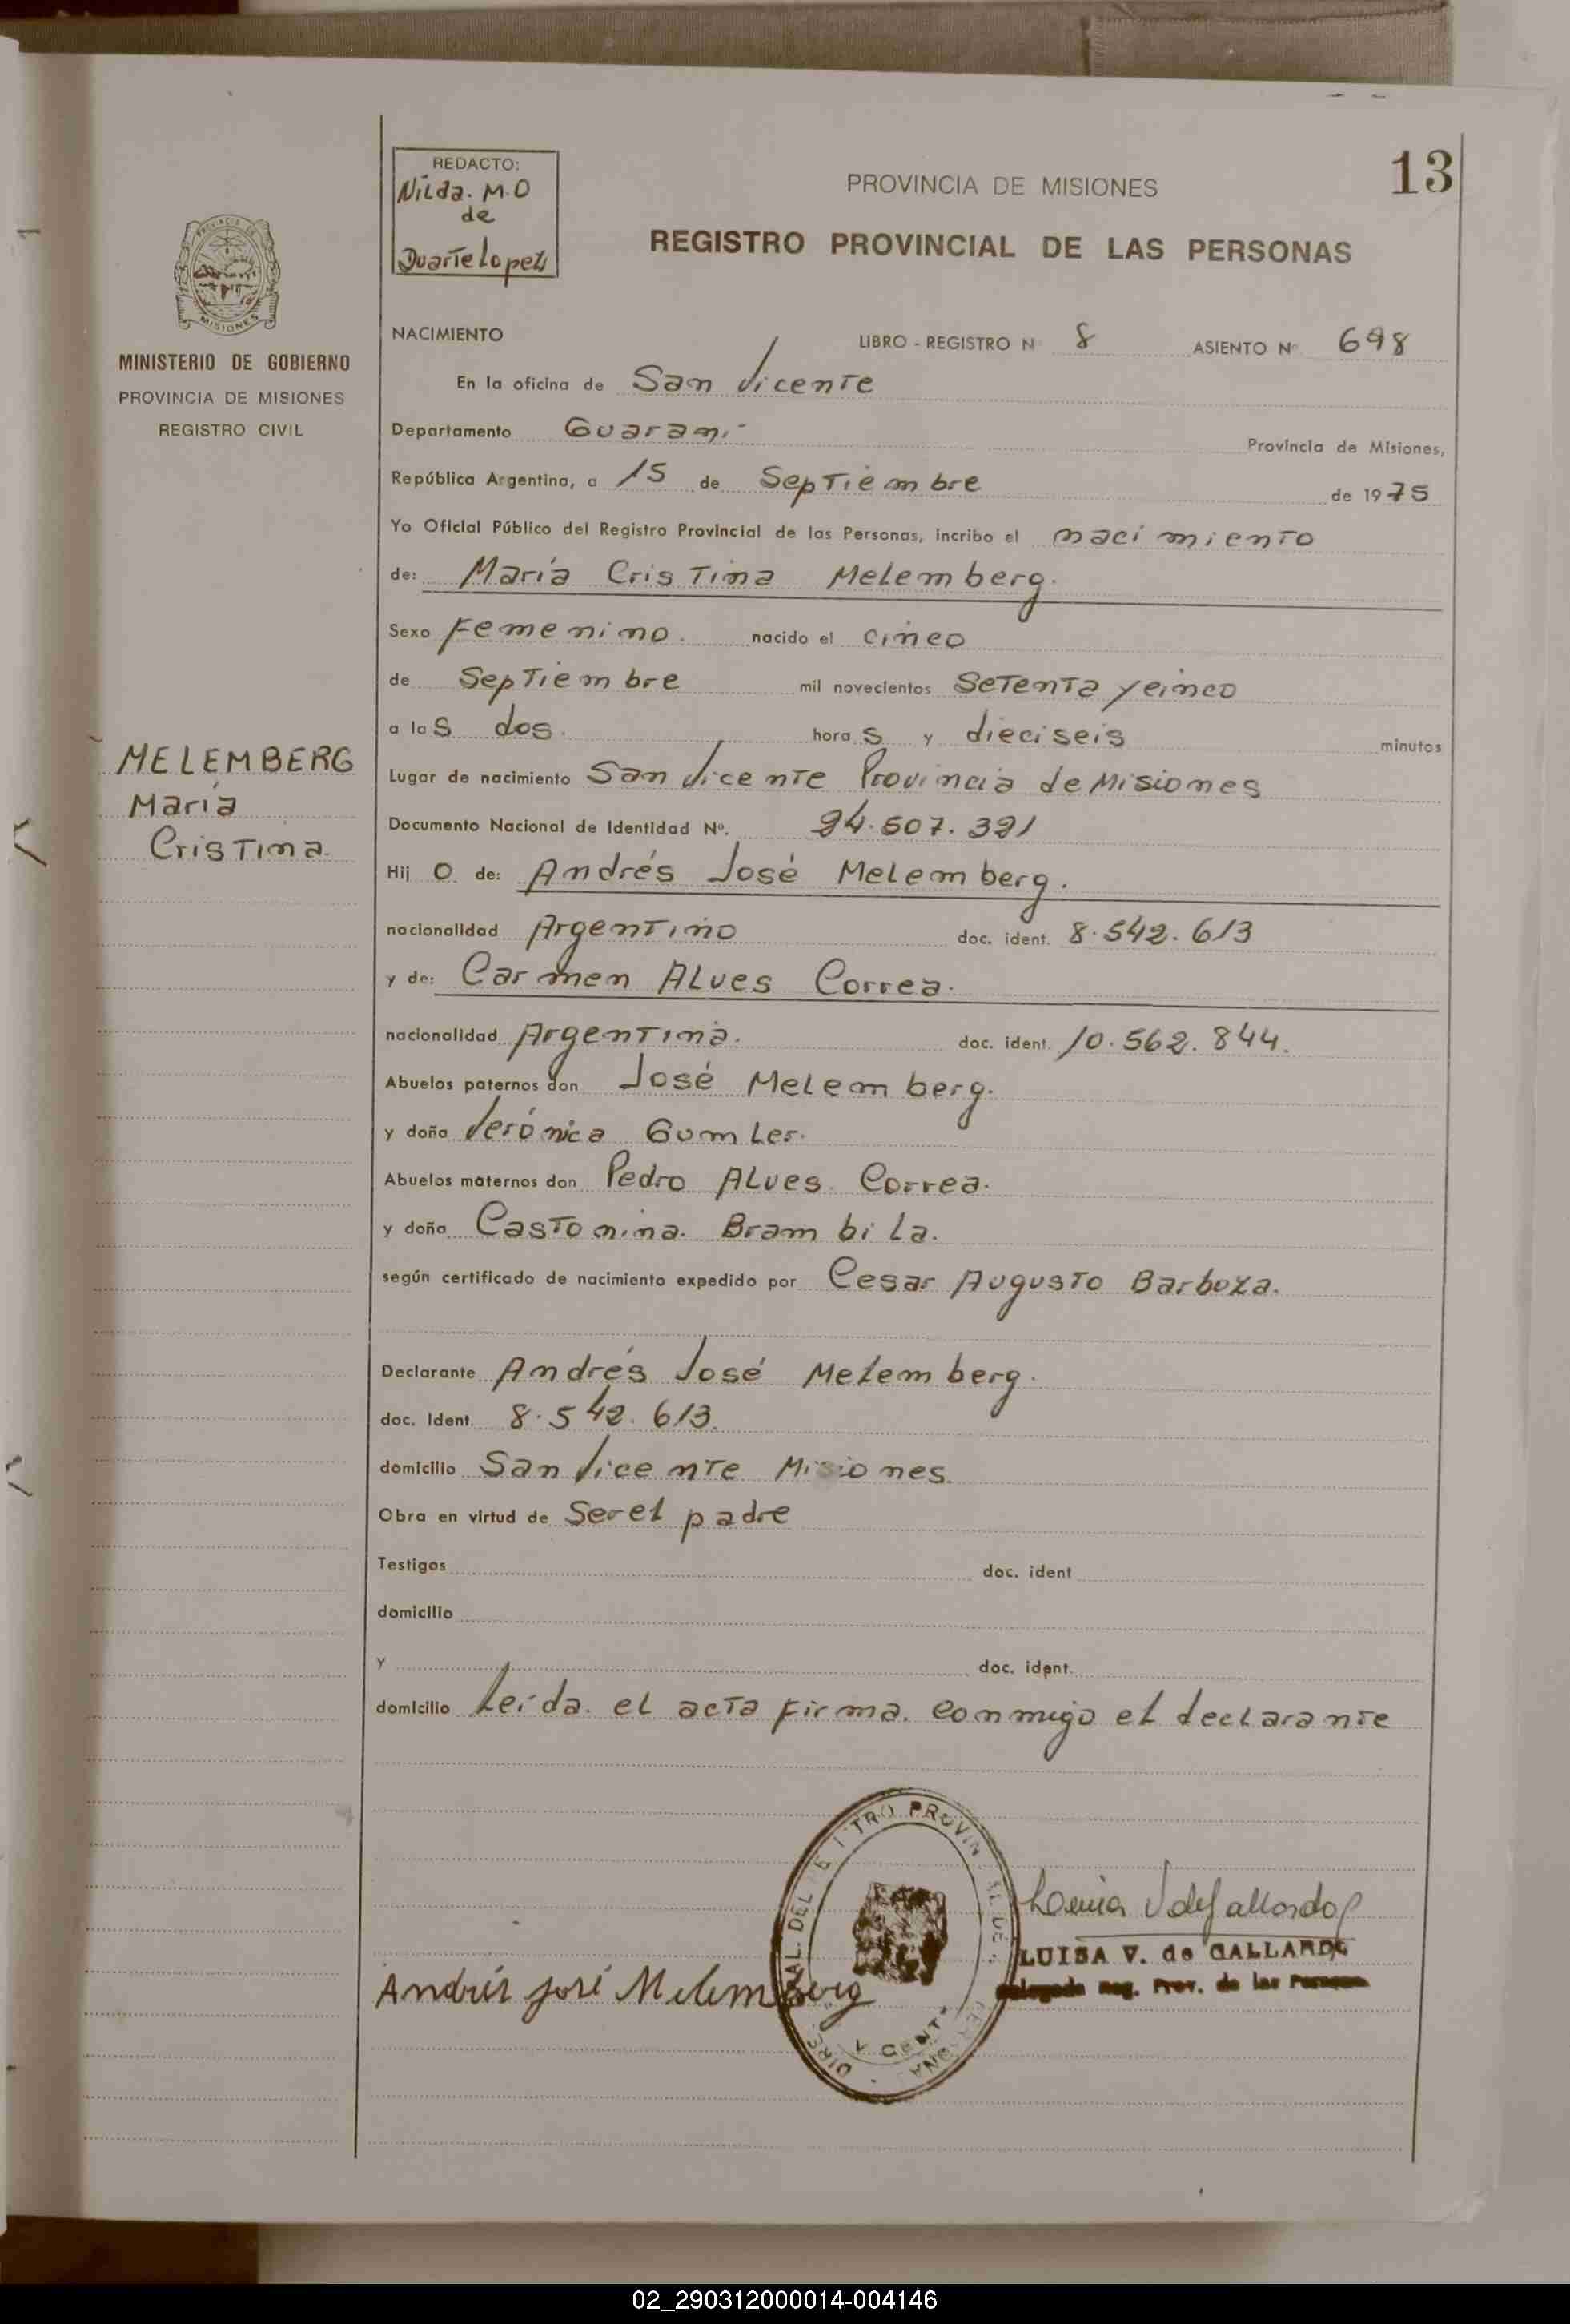 13
REDACTO:
Nilda. M.D
de
Duarte Lopez
PROVINCIA DE MISIONES
REGISTRO PROVINCIAL DE LAS PERSONAS
MISIONES
MINISTERIO DE GOBIERNO
PROVINCIA DE MISIONES
REGISTRO CIVIL
NACIMIENTO LIBRO - REGISTRO N 8 ASIENTO Nº 698
En la oficina de San Vicente
Departamento Guaraní Provincia de Misiones,
República Argentina, a 15 de Septiembre de 1975
Yo Oficial Público del Registro Provincial de las Personas, incribo el nacimiento
de: María Cristina Melemberg.
Sexo Femenino. nacido el cinco
de Septiembre mil novecientos Setenta y cinco
a las dos. horas y dieciseis minutos
MELEMBERG
María
Cristina.
Lugar de nacimiento San Vicente Provincia de Misiones
Documento Nacional de Identidad Nº. 24.507.391
Hijo de: Andrés José Melemberg.
nacionalidad Argentino doc. ident. 8.542.613
y de: Carmen Alves Correa.
nacionalidad Argentina. doc. ident. 10.562.844.
Abuelos paternos don José Melemberg.
y doña Verónica Gomler.
Abuelos maternos don Pedro Alves Correa.
y doña Castonina. Brambila.
según certificado de nacimiento expedido por Cesar Augusto Barboza.
Declarante Andrés José Melemberg.
doc. Ident. 8.542.613.
domicilio San Vicente Misiones.
Obra en virtud de Ser el padre
Testigos doc. ident
domicilio
y doc. ident.
domicilio Leída. el acta firma. conmigo el declarante
Andrés José Melemberg
LUISA V. de GALLARDO
Delegada Reg. Prov. de las Personas
02_290312000014-004146